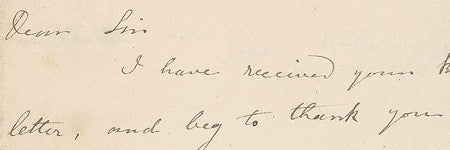 Dear Sir
I have received your
letter, and beg to thank you